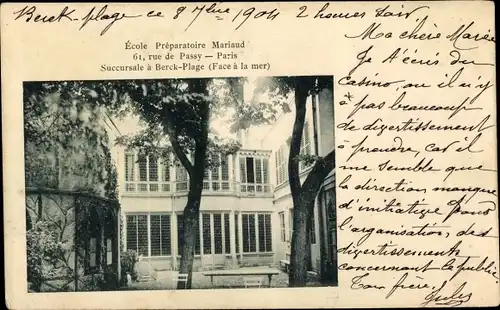 Berck-plage ce 8 7bre 1904 2 heures soir
École Préparatoire Mariaud
61, rue de Passy — Paris
Succursale à Berck-Plage (Face à la mer)
Ma chère Marie
Je t'écris du
casino, ou il n'y
a pas beaucoup
de divertissement
à prendre, car il
me semble que
la direction manque
d'initiative pour
l'organisation, des
divertissements
concernant le public
Ton frère Jules